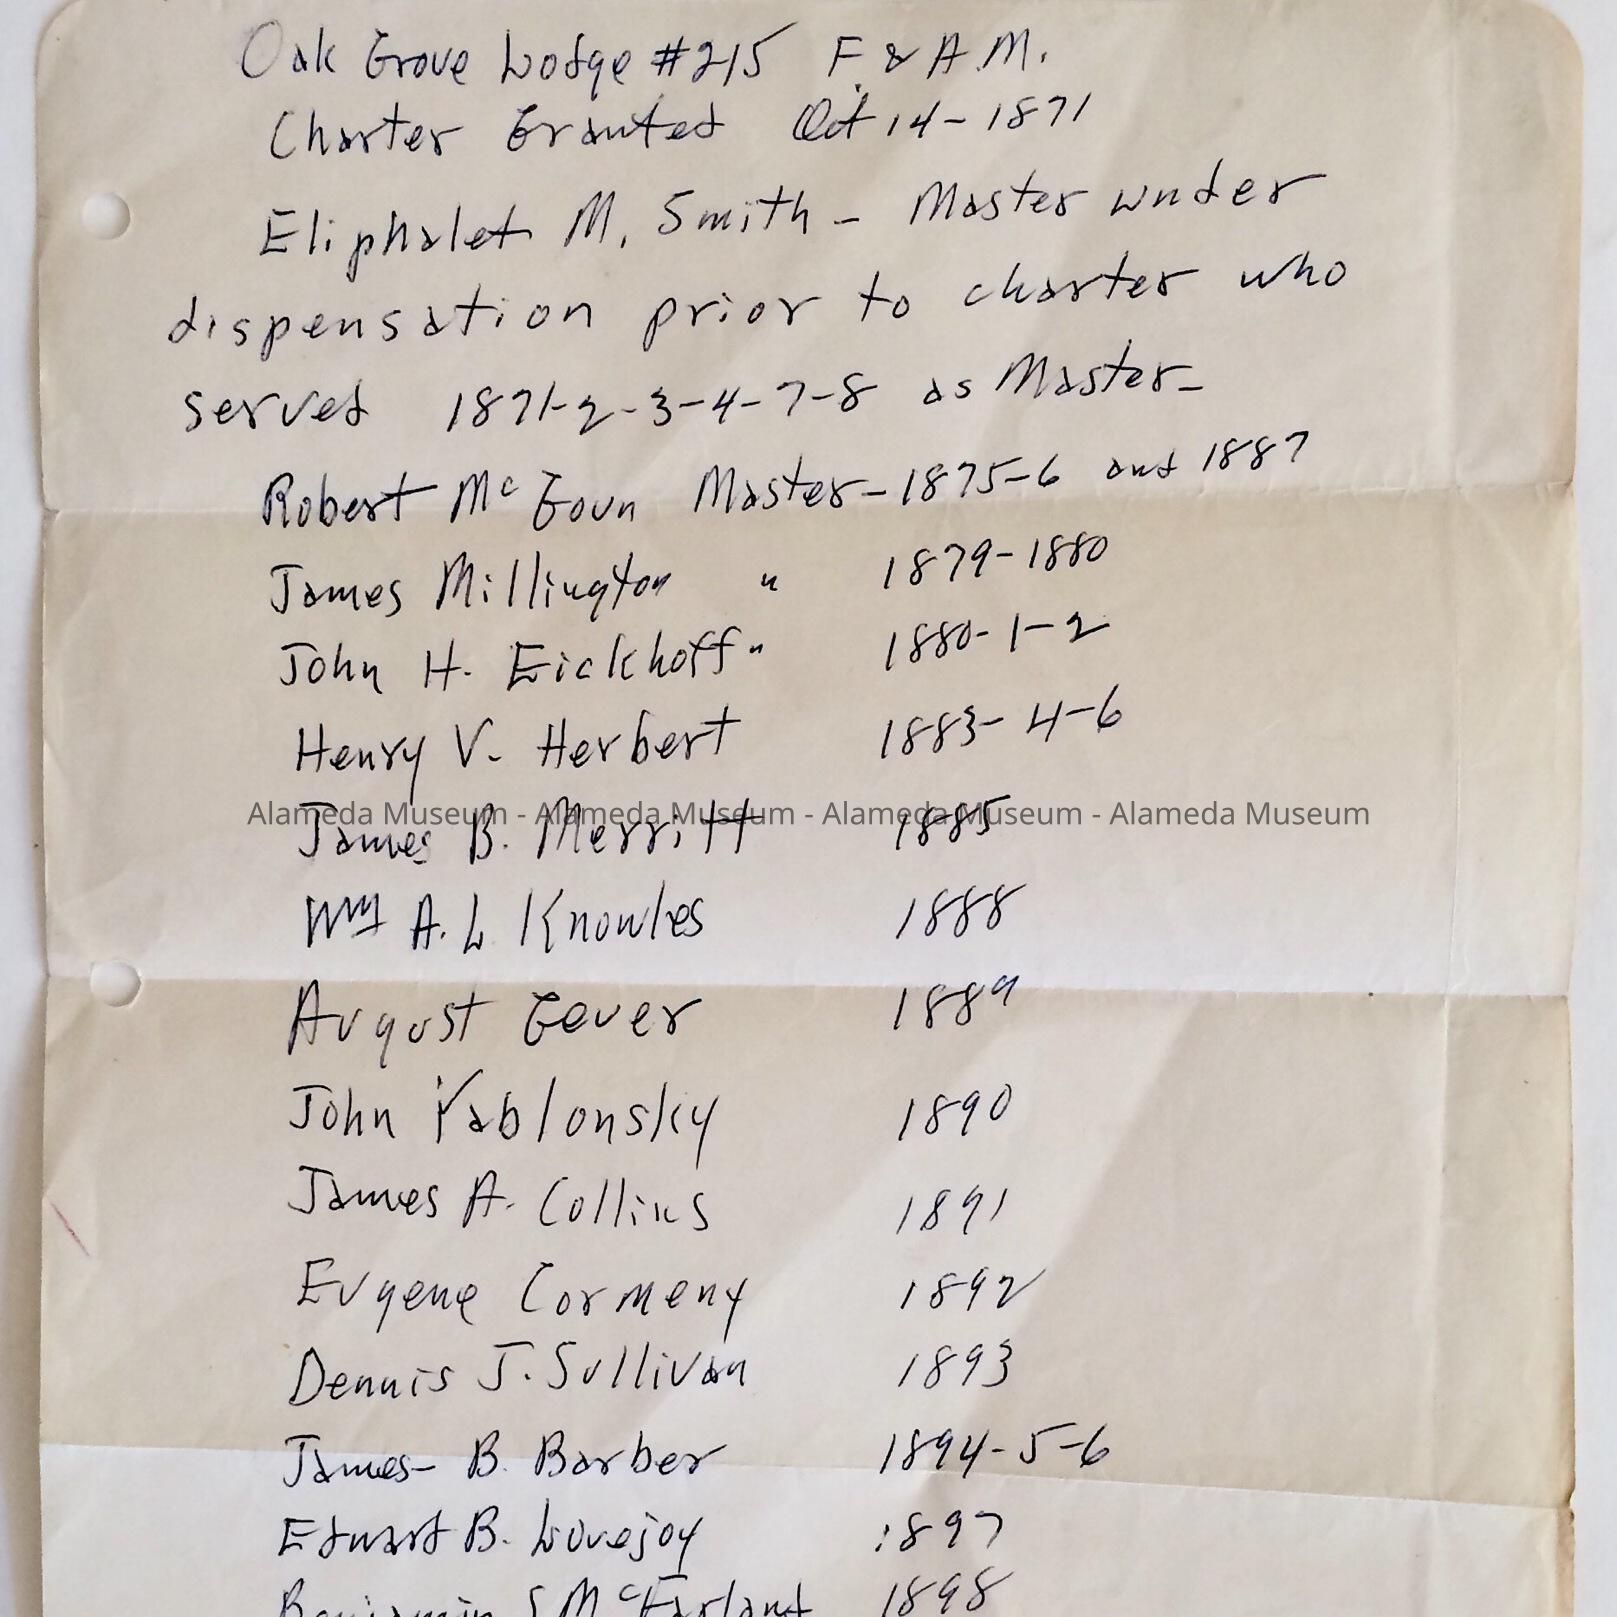 Oak Grove Lodge #215 F. & A.M.
Charter Granted Oct 14-1871
Eliphalet M. Smith - Master under
dispensation prior to charter who
served 1871-2-3-4-7-8 as Master-
Robert Mc Goun Master-1875-6 and 1887
James Millington " 1879-1880
John H. Eickhoff " 1880-1-2
Henry V. Herbert 1883-4-6
Alameda Museum - Alameda Museum - Alameda Museum - Alameda Museum
James B. Merritt 1885
Wm A. L. Knowles 1888
August Gever 1889
John Yablonsky 1890
James A. Collins 1891
Eugene Cormeny 1892
Dennis J. Sullivan 1893
James- B. Barber 1894-5-6
Edward B. Lovejoy 1897
Benjamin S McFarland 1898